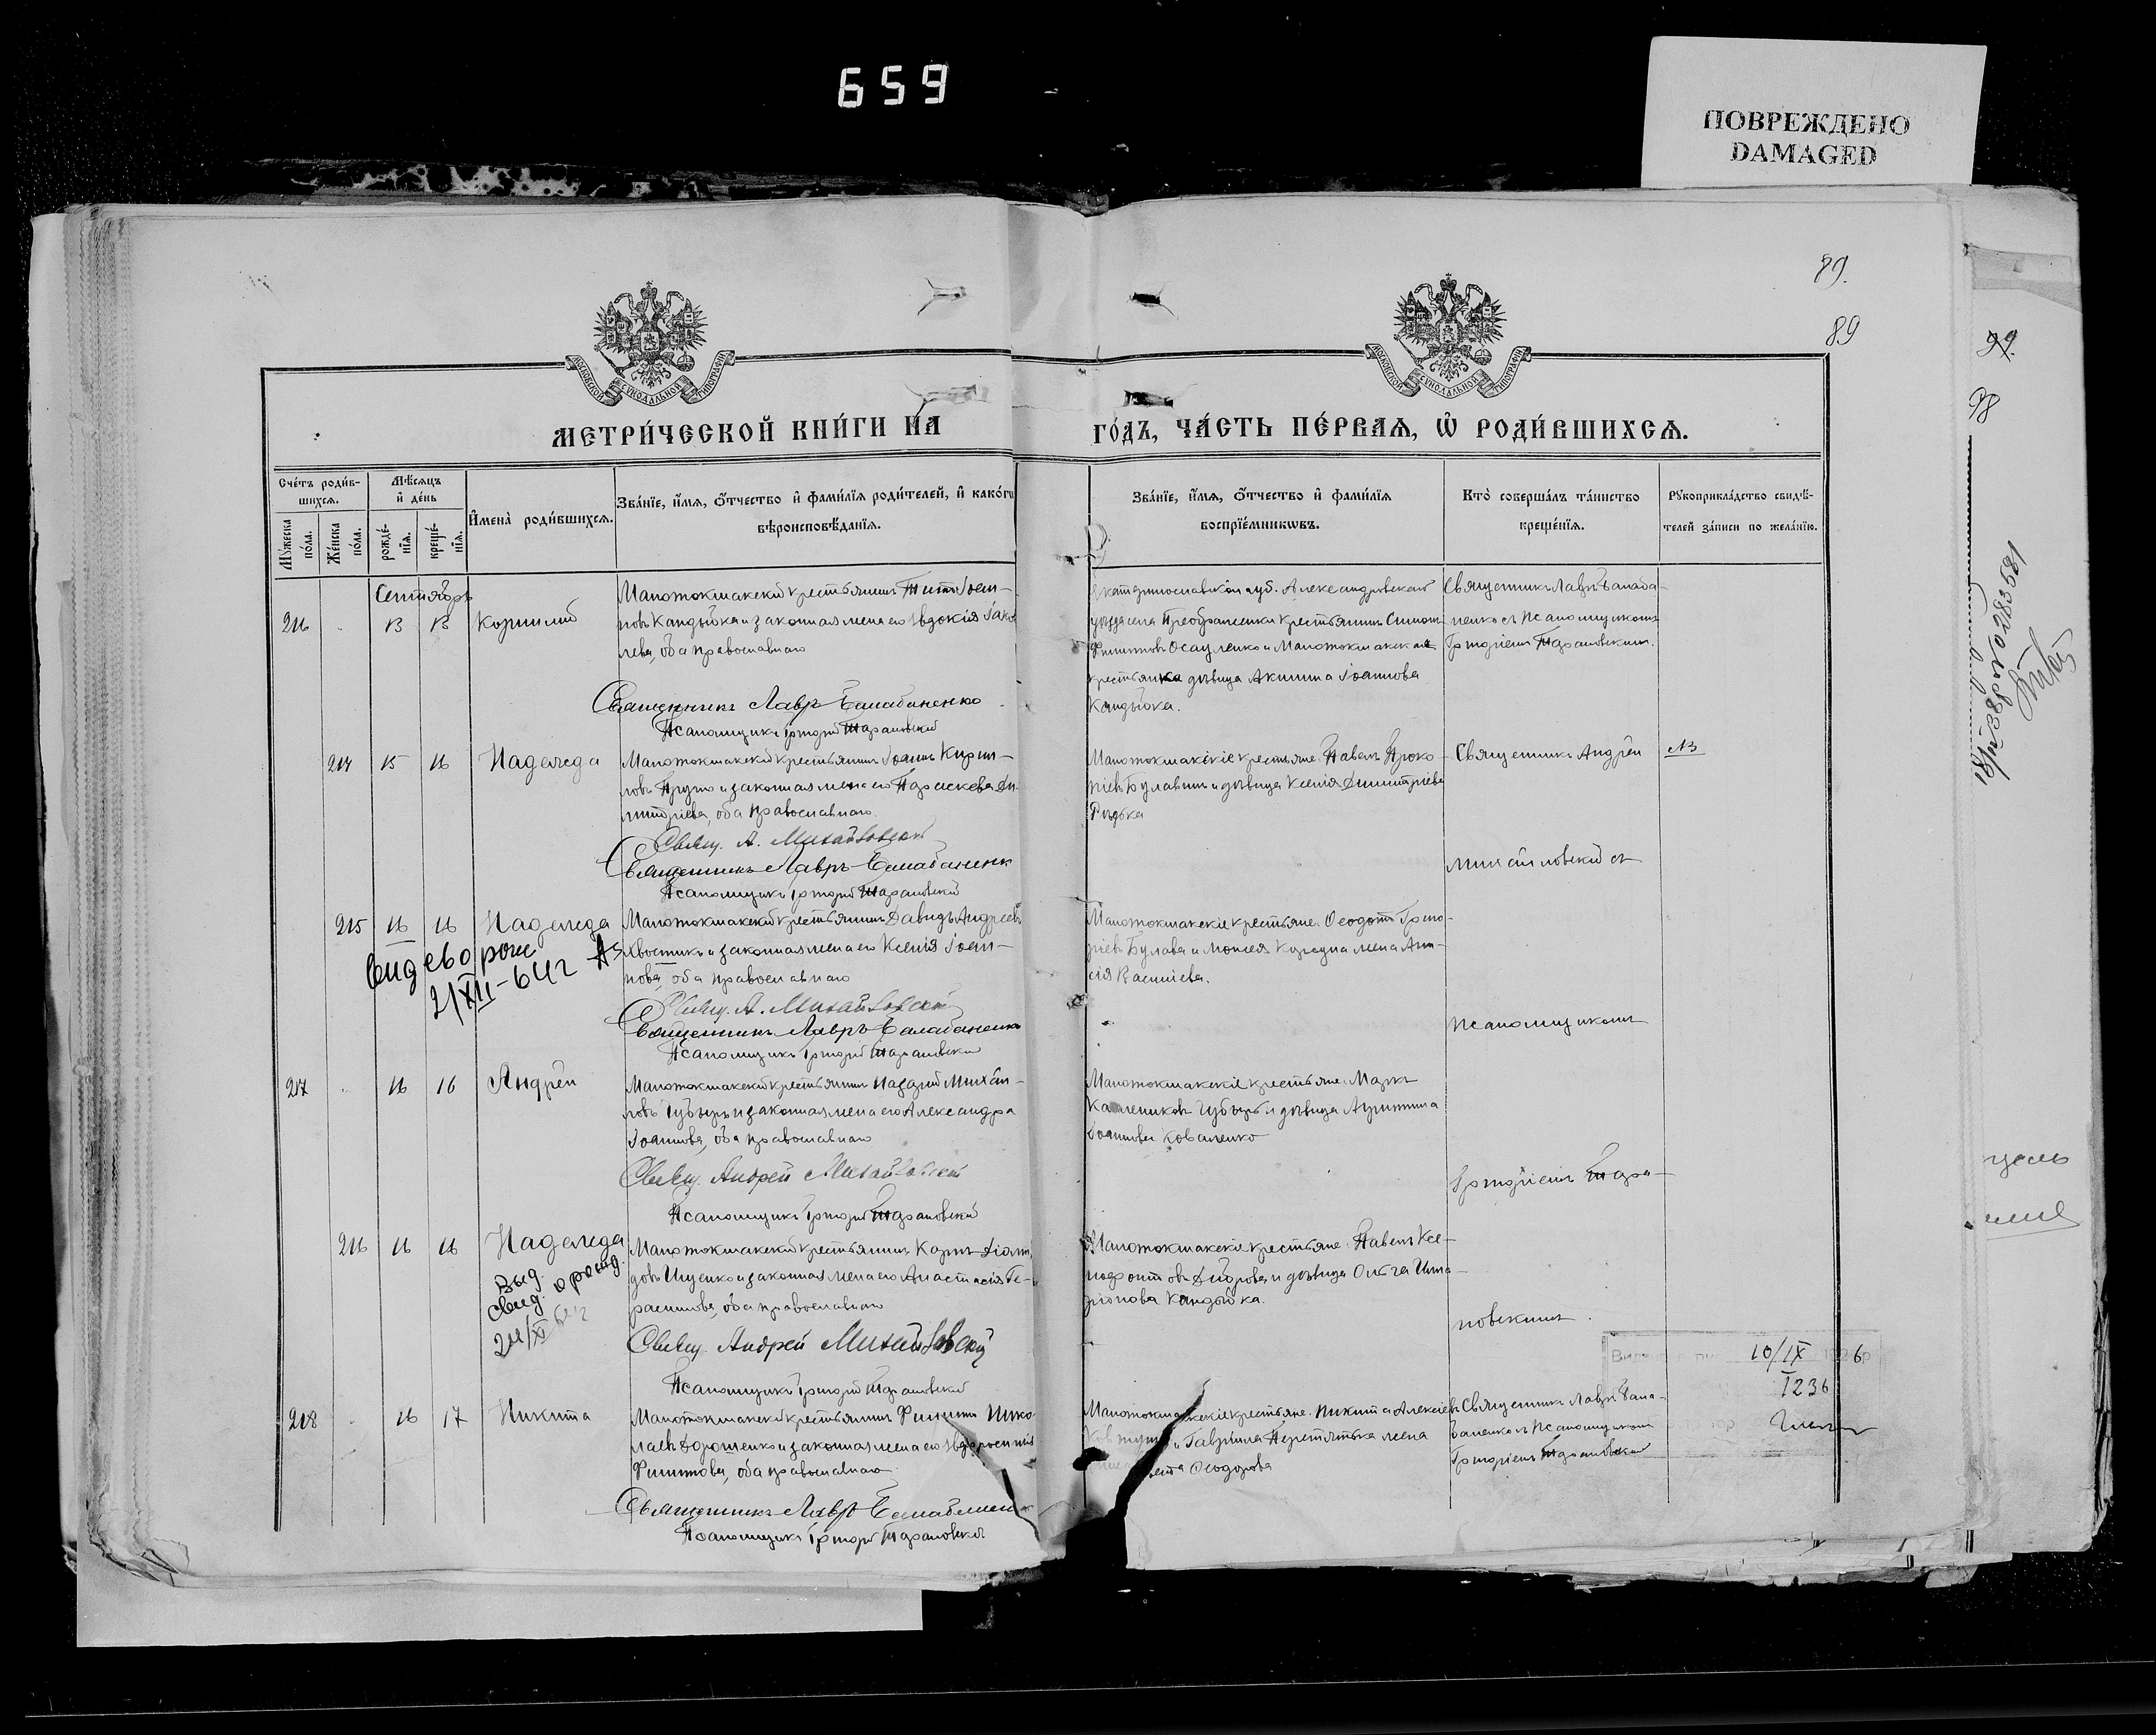 659
ПОВРЕЖДЕНО
DAMAGED
89.
89
99.
98
МОСКОВСКОЙ СѴНОДАЛЬНОЙ ТИПОГРАФІИ
МОСКОВСКОЙ СѴНОДАЛЬНОЙ ТИПОГРАФІИ
МЕТРИ́ЧЕСКОЙ КНИ́ГИ НА
ГО́ДЪ, ЧА́СТЬ ПЕ́РВАѦ, Ѡ҆ РОДИ́ВШИХСѦ.
Сче́тъ роди́в-
шихся.
Мѣ́сяцъ
и҆ де́нь
Мꙋ́жеска по́ла.
Же́нска по́ла.
рожде́-нїѧ.
креще́-нїѧ.
И҆мена̀ роди́вшихсѧ.
Зва́нїе, и҆́мѧ, ѻ҆́тчество и҆ фами́лїѧ роди́телей, и҆ како́гѡ
вѣроисповѣ́данїѧ.
Зва́нїе, и҆́мѧ, ѻ҆́тчество и҆ фами́лїѧ
воспрїе́мникѡвъ.
Кто̀ соверша́лъ та́инство
креще́нїѧ.
Рꙋкоприкла́дство свидѣ́-
телей за́писи по жела́нїю.
Сентябрь
216 13 13 Корнилій
Малотокмакскій крестьянинъ Титъ Іоан-
новъ Кандыбка и законная жена его Евдокія Іаков
лева, оба православнаго
Священникъ Лавръ Балабаненко
Псаломщикъ Григорій Тарановскій
Екатеринославской губ. Александровскаго
уѣзда села Преображенки крестьянинъ Симонъ
Филиповъ Осауленко и Малотокмакская
крестьянка дѣвица Акилина Іоаннова
Кандыбка.
Священникъ Лавръ Балаба-
ненко съ Псаломщикомъ
Григоріемъ Тарановскимъ.
214 15 16 Надежда
Малотокмакскій крестьянинъ Іоаннъ Кирил-
ловъ и законная жена его Параскева Ди-
митріева, оба православнаго.
Свящ. А. Михайловскій
Священникъ Лавръ Балабаненк
Псаломщикъ Григорій Тарановскій
Малотокмакскіе крестьяне: Павелъ Проко-
піевъ Булавинъ и дѣвица Ксенія Димитріева
Рѣдька
Священникъ Андрей
Михайловскій съ
215 16 16 Надежда
Малотокмакскій крестьянинъ Давидъ Андреевъ
Хвостикъ и законная жена его Ксенія Іоан-
нова, оба православнаго
Свид-во о рож
2/XII-64г
Свящ. А. Михайловскій
Священникъ Лавръ Балабаненко
Псаломщикъ Григорій Тарановскій
Малотокмакскіе крестьяне: Ѳеодотъ Григо-
ріевъ Булава и Моисея жена Ани-
сія Василіева.
псаломщикомъ
217 16 16 Андрей
Малотокмакскій крестьянинъ Назарій Михай-
ловъ Губырь и законная жена его Александра
Іоаннова, оба православнаго
Свящ. Андрей Михайловскій
Псаломщикъ Григорій Тарановскій
Малотокмакскіе крестьяне: Маркъ
Губырь и дѣвица
Іоаннова Коваленко
Григоріемъ Тара-
216 16 16 Надежда
Малотокмакскій крестьянинъ Карпъ Діоми
довъ Ищенко и законная жена его Анастасія Ге-
расимова, оба православнаго
Выд.
свид. о рожд.
24/XI 64г
Свящ. Андрей Михайловскій
Псаломщикъ Григорій Тарановскій
Малотокмакскіе крестьяне: Павелъ Ксе-
нофонтовъ и дѣвица Ольга Ила-
ріонова Кандыбка.
новскимъ.
10/IX 6р
1236
218 16 17 Никита
Малотокмакскій крестьянинъ Филиппъ Нико-
лаевъ Дорошенко и законная жена его Евфросинія
Филиппова, оба православнаго
Священникъ Лавръ Балабаненко
Псаломщикъ Григорій Тарановскій
Малотокмакскіе крестьяне: Никита Алексіевъ
и Гавріила Перетятька жена
Ѳеодорова
Священникъ Лавръ Бала-
баненко съ Псаломщикомъ
Григоріемъ Тарановскимъ